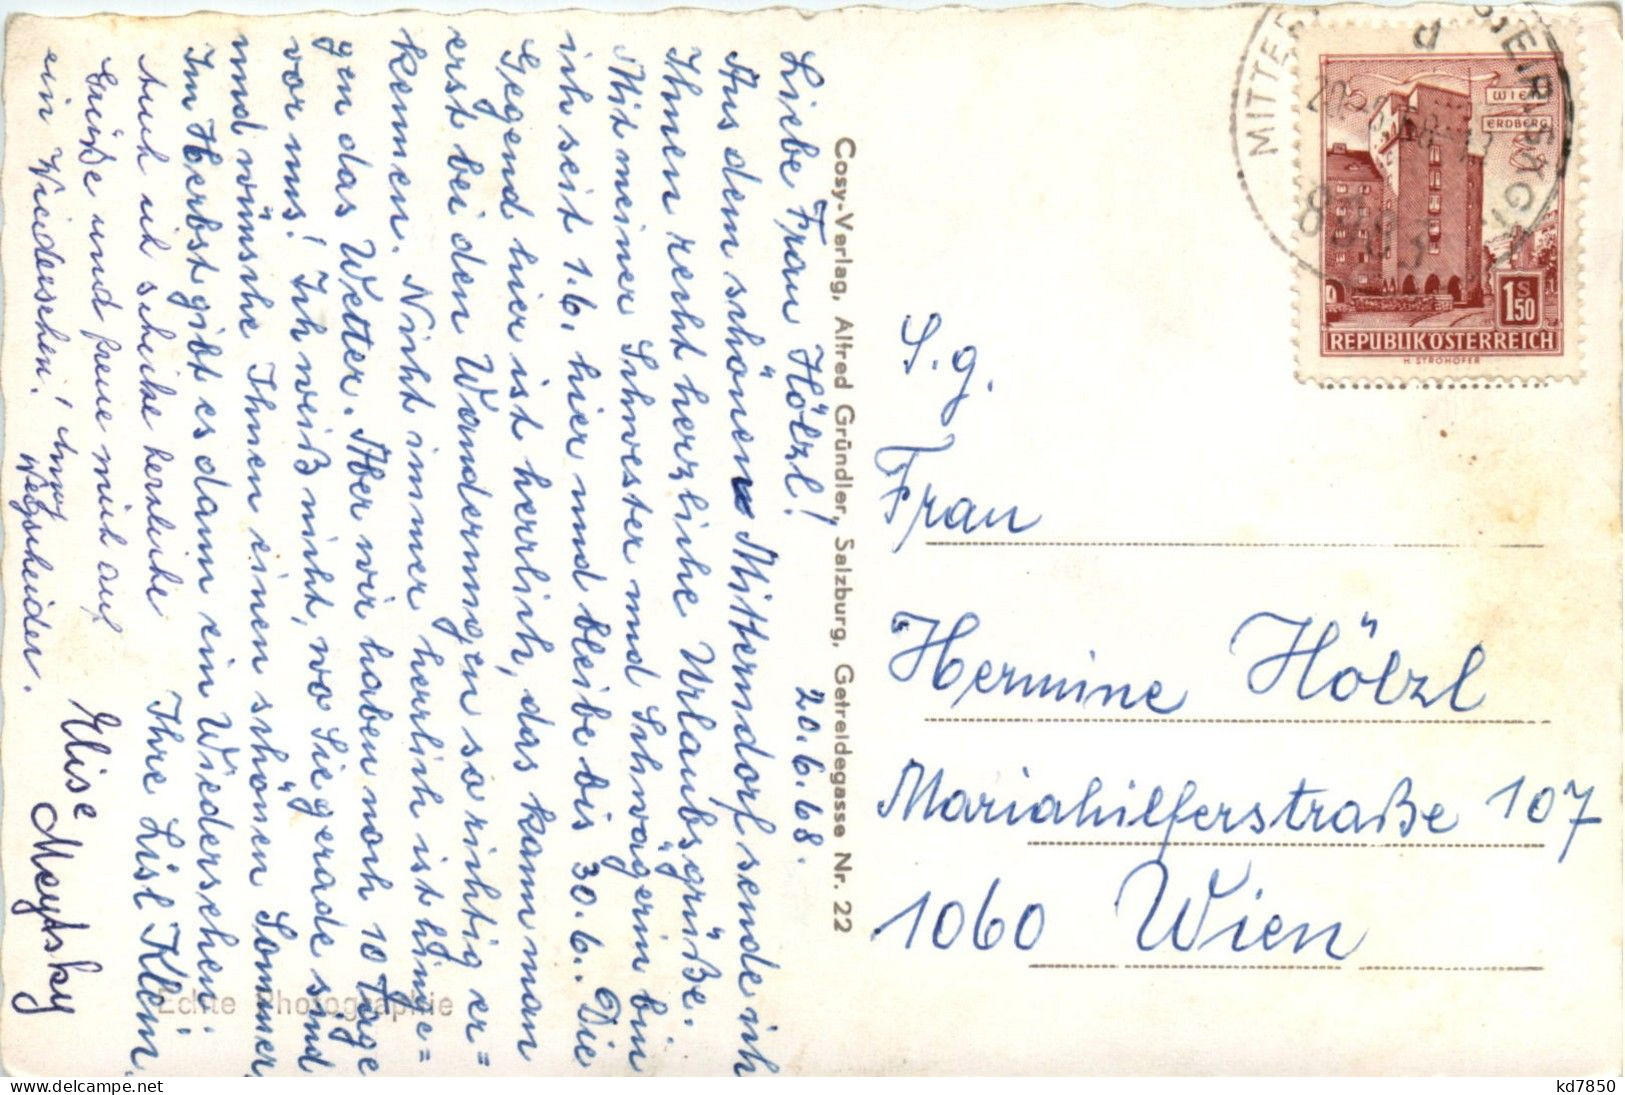 Liebe Frau Hölzl! 20.6.68.
Aus dem schönen Mitterndorf sende ich
Ihnen recht herzliche Urlaubsgrüße.
Mit meiner Schwester und Schwägerin bin
ich seit 1.6. hier und bleibe bis 30.6.. Die
Gegend hier ist herrlich, das kann man
erst bei den Wanderungen so richtig er=
kennen. Nicht immer herrlich ist hinge=
gen das Wetter. Aber wir haben noch 10 Tage
vor uns! Ich weiß nicht, wo Sie gerade sind
und wünsche Ihnen einen schönen Sommer,
Im Herbst gibt es dann ein Wiedersehen!
Ihre Lisl Klein.
Auch ich schicke herzliche
Grüße und freue mich auf
ein Wiedersehen!
Wegscheider.
Elise
Echte Photographie
Cosy-Verlag, Alfred Gründler, Salzburg, Getreidegasse Nr. 22
S.g.
Frau
Hermine Hölzl
Mariahilferstraße 107
1060 Wien
WIEN
ERDBERG
1 S 50
REPUBLIK ÖSTERREICH
H. STROHOFER
delcampe.net
kd7850